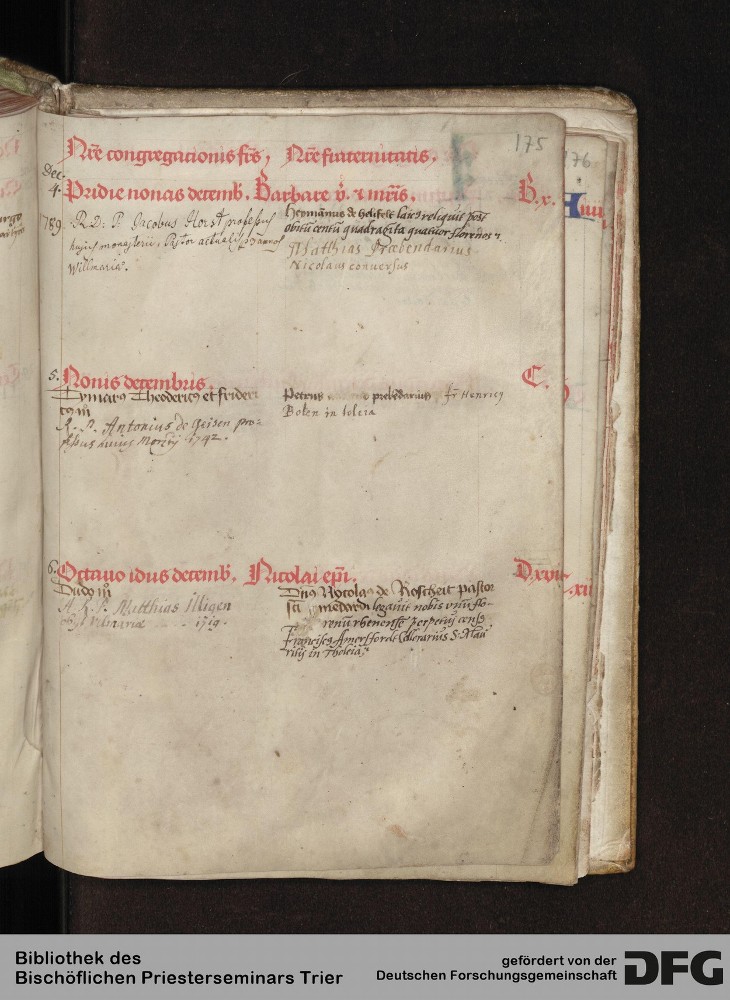 175
176
Nr̄e congregacionis frs̄, Nr̄e fraternitatis.
Dec.
4. Pridie nonas decemb. Barbare v. et mrīs. B. x.
1789. R. D. P. Jacobus Horst professus
hujus monasterii, Pastor actualis
Willmariæ.
Heymannus de laic9 reliquit post
obitū centū quadragīta quatuor florenos
Matthias Præbendarius
Nicolaus conuersus
5. Nonis decembris. C.
Theoderic9 et frideri
cus
R. P. Antonius de Geisen pro-
fessus huius Mon̄rij 1742.
Petrus prebēdarius Fr Henricy
Bolen in toleia
6. Octauo idus decemb. Nicolai ep̄i. D. xvii
xii
Dudo
A. R. P. Matthias Illigen
Vilmariæ 1719.
Dn̄s Nycola9 de Roscheit pastor
sci medardi legauit nobis vnū flo-
renū rhenensē perpetui cens9
Francisc9 Amersfordt Cellerarius S. Mau
ritij in Tholeia
Bibliothek des
Bischöflichen Priesterseminars Trier
gefördert von der
Deutschen Forschungsgemeinschaft
DFG